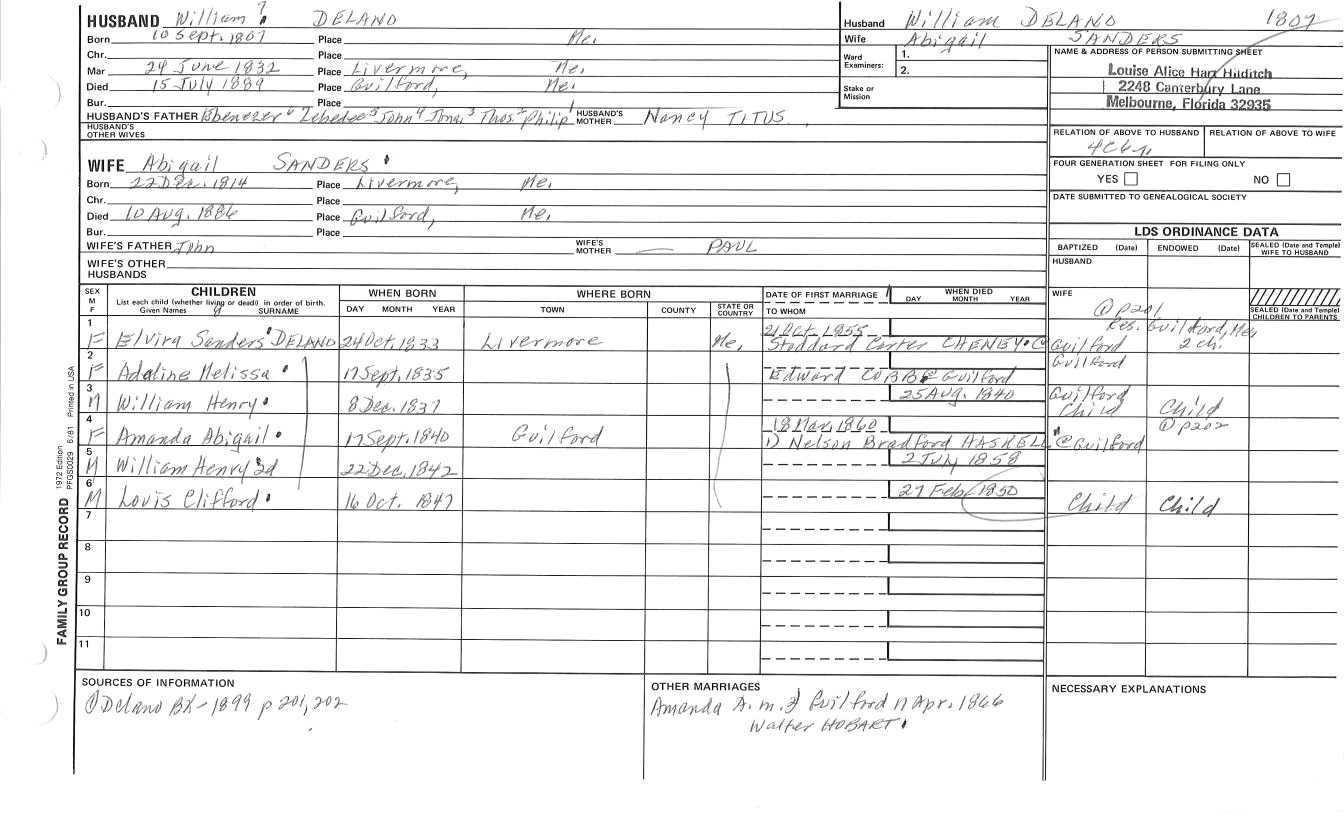 HUSBAND William 7 DELANO
Born 10 Sept. 1807 Place Me.
Chr. Place
Mar 24 June 1832 Place Livermore, Me.
Died 15 July 1889 Place Guilford, Me.
Bur. Place
HUSBAND'S FATHER Ebenezer 6 Zebedee 5 John 4 Jona. 3 Thos. 2 Philip 1 HUSBAND'S MOTHER Nancy TITUS
HUSBAND'S OTHER WIVES
Husband William DELANO 1807
Wife Abigail SANDERS
Ward Examiners: 1.
2.
Stake or Mission
NAME & ADDRESS OF PERSON SUBMITTING SHEET
Louise Alice Hart Hilditch
2248 Canterbury Lane
Melbourne, Florida 32935
RELATION OF ABOVE TO HUSBAND RELATION OF ABOVE TO WIFE
FOUR GENERATION SHEET FOR FILING ONLY
YES NO
DATE SUBMITTED TO GENEALOGICAL SOCIETY
WIFE Abigail SANDERS
Born 22 Dec. 1814 Place Livermore, Me.
Chr. Place
Died 10 Aug. 1886 Place Guilford, Me.
Bur. Place
WIFE'S FATHER John WIFE'S MOTHER — PAUL
WIFE'S OTHER HUSBANDS
LDS ORDINANCE DATA
BAPTIZED (Date) ENDOWED (Date) SEALED (Date and Temple) WIFE TO HUSBAND
HUSBAND
WIFE
SEALED (Date and Temple) CHILDREN TO PARENTS
SEX M F
CHILDREN
List each child (whether living or dead) in order of birth.
Given Names SURNAME
WHEN BORN
DAY MONTH YEAR
WHERE BORN
TOWN COUNTY STATE OR COUNTRY
DATE OF FIRST MARRIAGE
TO WHOM
WHEN DIED
DAY MONTH YEAR
@ p201
Res. Guilford, Me,
2 ch.
1 21 Oct. 1855
F Elvira Sanders DELANO 24 Oct. 1833 Livermore Me. Stoddard Carter CHENEY @ Guilford
2 Guilford
F Adaline Melissa 17 Sept. 1835 Edward COBB @ Guilford
3 25 Aug. 1840 Guilford
M William Henry 8 Dec. 1837 Child Child
4 18 Mar. 1860 @ p202
F Amanda Abigail 17 Sept. 1840 Guilford 1) Nelson Bradford HASKELL @ Guilford
5 2 July 1858
M William Henry 2d 22 Dec. 1842
6 27 Feb. 1850
M Louis Clifford 16 Oct. 1847 Child Child
7
8
9
10
11
FAMILY GROUP RECORD 1972 Edition PFGS0029 6/81 Printed in USA
SOURCES OF INFORMATION
① Delano BK - 1899 p 201, 202
OTHER MARRIAGES
Amanda A. m. 2) Guilford 17 Apr. 1866
Walter HOBART
NECESSARY EXPLANATIONS